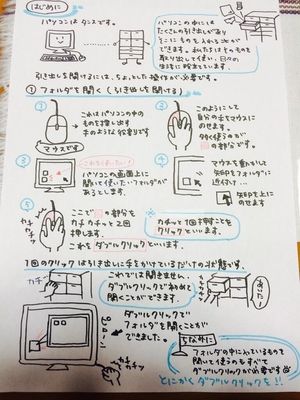 はじめに
パソコンはタンスです。
パソコンの中には
たくさんの引き出しがあり
そこにものを入れることが
できます。私たちはそのものを
取り出して使い、日々の
生活に役立ています。
引き出しを開けるには、ちょっとした操作が必要です。
① フォルダを開く(引き出しを開ける)
①
これはパソコンの中の
ものを指し出す
手のような役割りです
マウスです
②
このようにして
自分の手をマウスに
のせます。
よくつかうのが
の部分です。
③
これを使いたい!
パソコンの画面上に
開いて使いたいフォルダが
あるとします。
④
マウスを動かして
矢印をフォルダに
近付け…
矢印を上に
のせます
⑤
カチカチッ
ここで の部分を
カチカチッと2回
押します。
これをダブルクリックといいます。
カチッと1回押すことを
クリックといいます。
1回のクリックは引き出しに手をかけているだけの状態です
カチッ
これでは開きません。
ダブルクリックで初めて
開くことができます。
あいた!
ダブルクリックで
フォルダを開くことが
できました。
カチカチッ
ちなみに
フォルダの中に入っているものを
開いて使うのもすべて
ダブルクリックが必要です
とにかくダブルクリックを!!